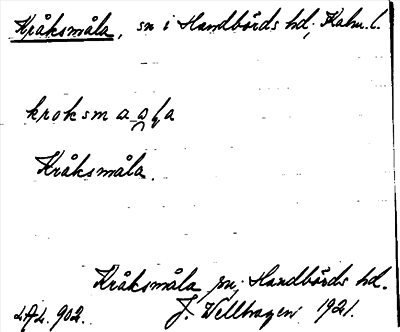 Kråksmåla, sn i Handbörds hd, Kalm. l.
Kråksmåla.
Kråksmåla sn, Handbörds hd.
J. Wellhagen 1921.